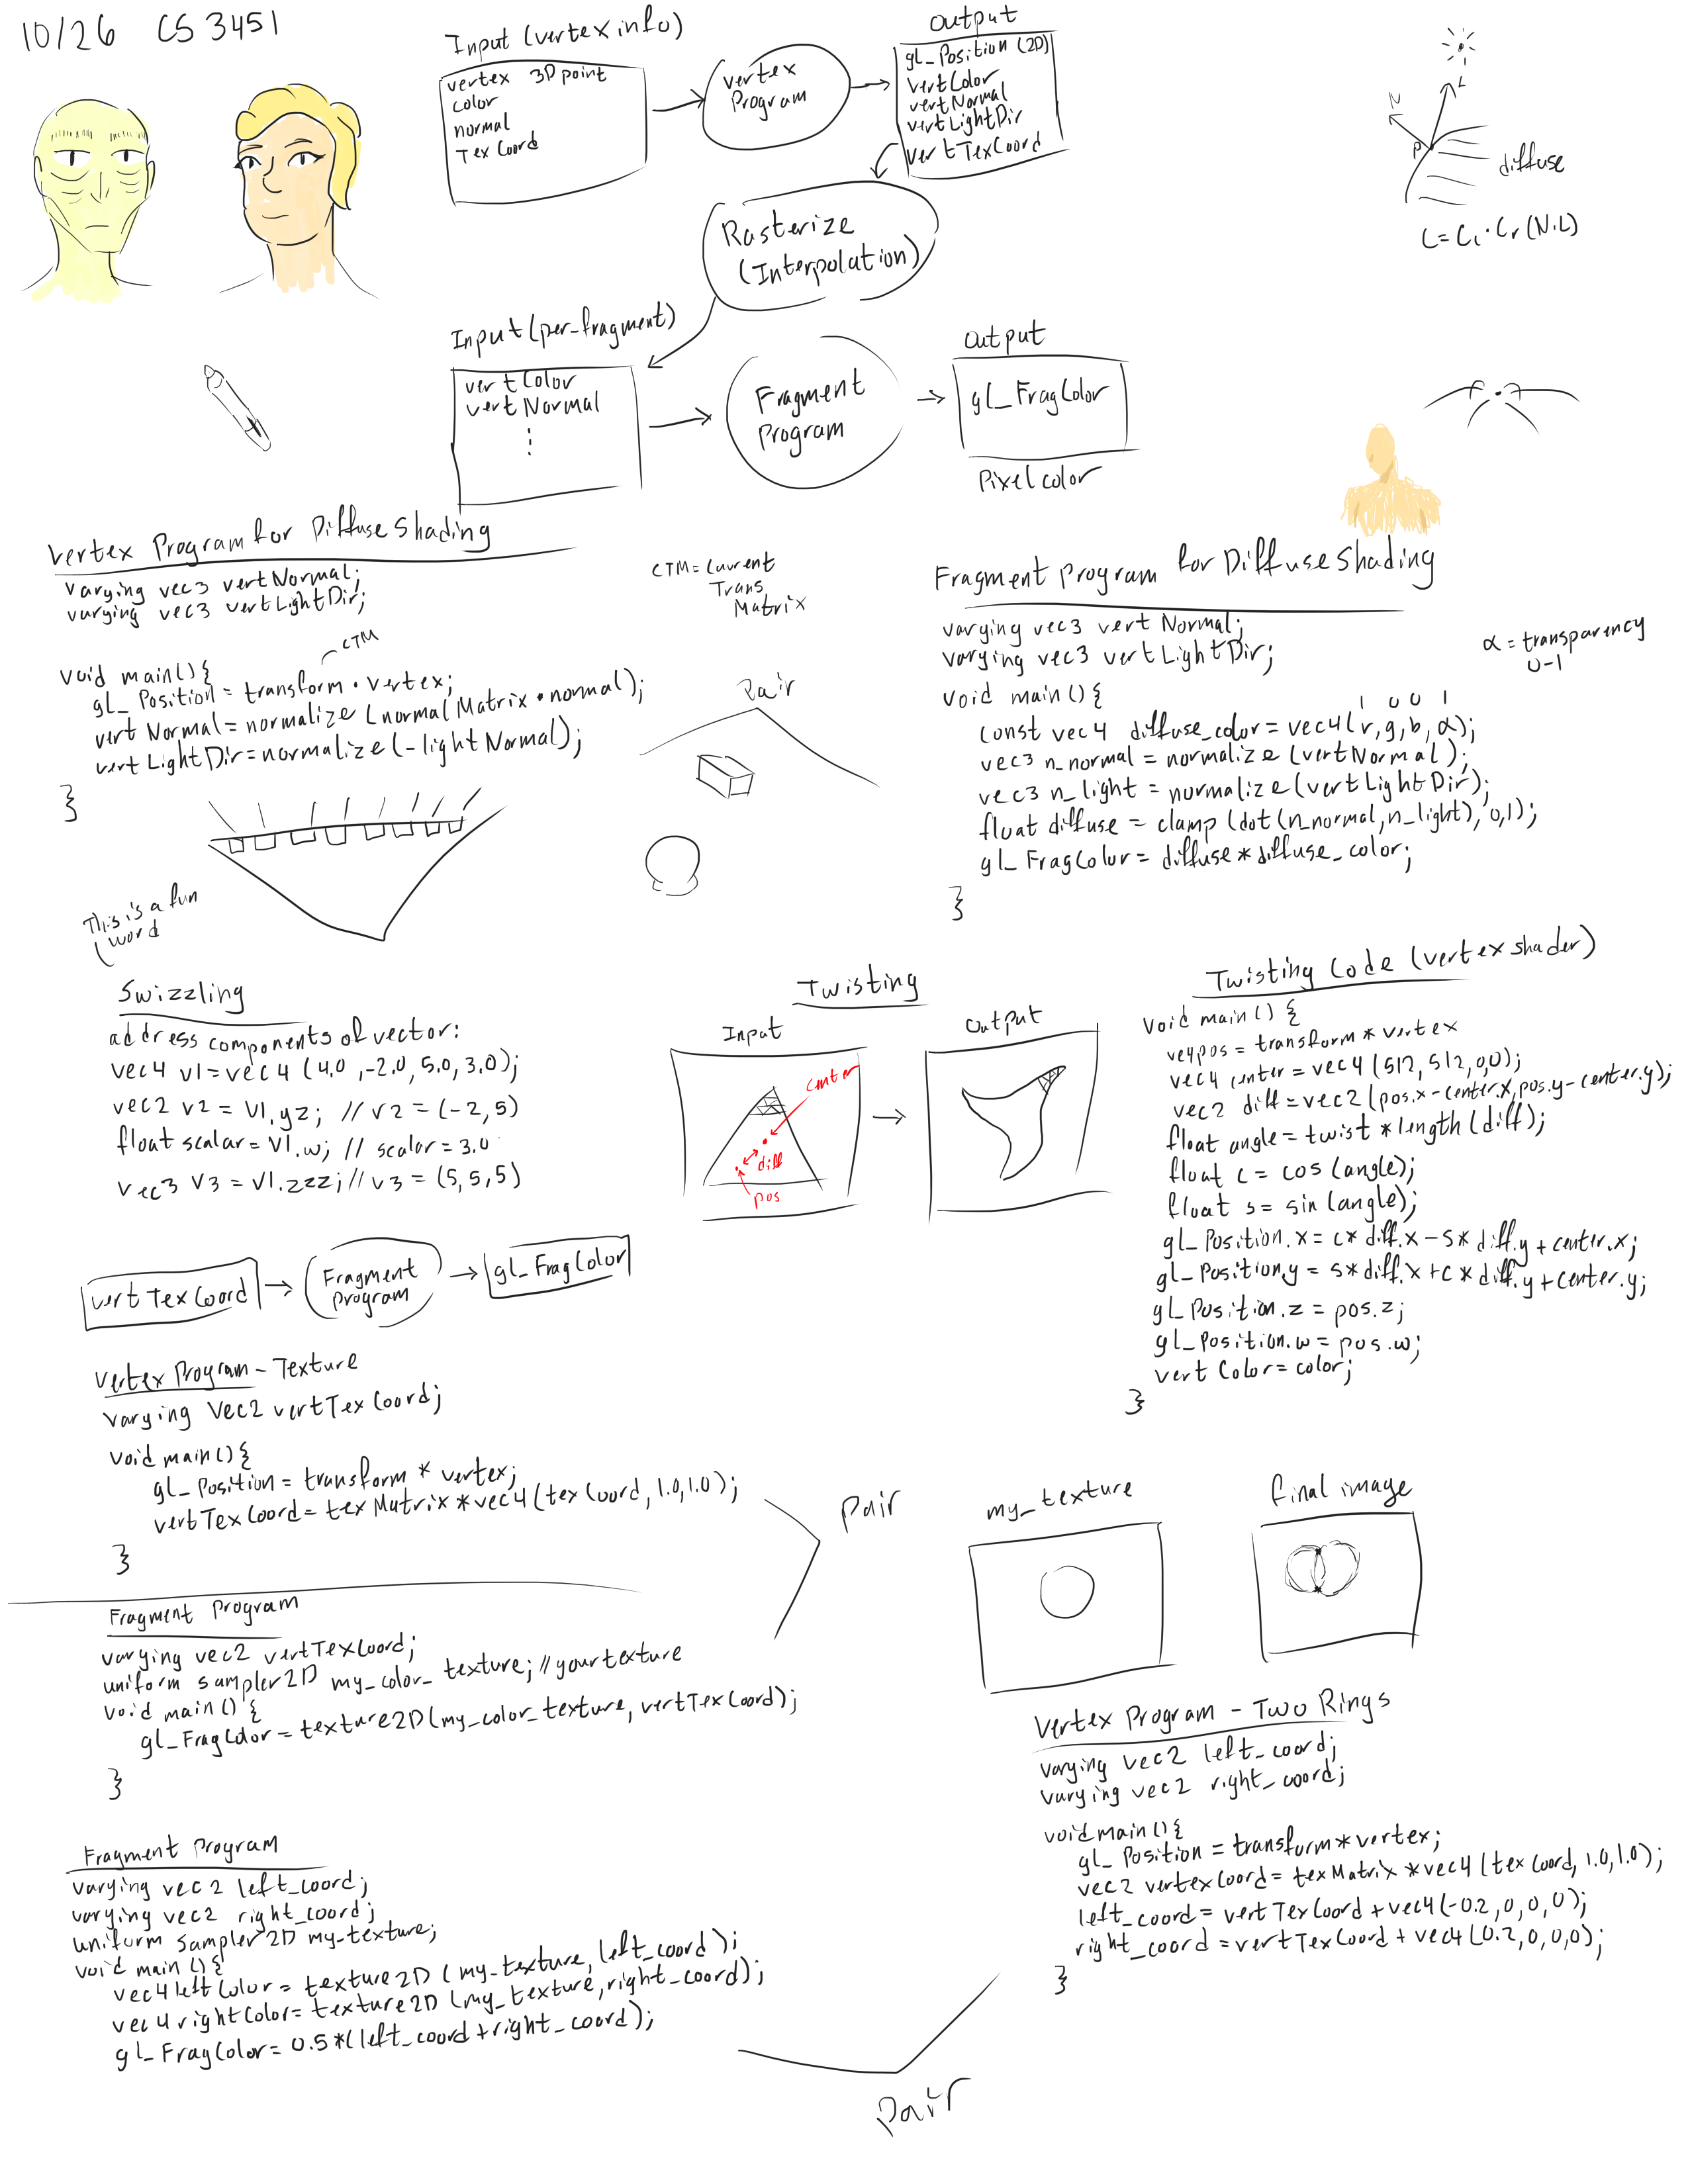 10/26 CS 3451
Input (vertex info)
vertex 3D point
color
normal
Tex Coord
vertex
Program
Output
gl_Position (2D)
vertColor
vertNormal
vertLightDir
vertTexCoord
N
L
P
diffuse
C = Cl · Cr (N·L)
Rasterize
(Interpolation)
Input (per_fragment)
vertColor
vertNormal
⋮
Fragment
Program
Output
gl_FragColor
Pixel color
Vertex Program for Diffuse Shading
varying vec3 vertNormal;
varying vec3 vertLightDir;
CTM
void main(){
gl_Position = transform * vertex;
vertNormal = normalize (normalMatrix * normal);
vertLightDir = normalize (-lightNormal);
}
CTM = Current
Trans
Matrix
Pair
Fragment program for Diffuse Shading
varying vec3 vertNormal;
varying vec3 vertLightDir;
void main(){
1 0 0 1
const vec4 diffuse_color = vec4(r,g,b,α);
vec3 n_normal = normalize (vertNormal);
vec3 n_light = normalize (vertLightDir);
float diffuse = clamp (dot(n_normal, n_light), 0,1);
gl_FragColor = diffuse * diffuse_color;
}
α = transparency
0-1
This is a fun
word
Swizzling
address components of vector:
vec4 v1 = vec4 (4.0, -2.0, 5.0, 3.0);
vec2 v2 = v1.yz; // v2 = (-2, 5)
float scalar = v1.w; // scalar = 3.0
vec3 v3 = v1.zzz; // v3 = (5, 5, 5)
Twisting
Input
center
diff
pos
Output
Twisting Code (vertex shader)
void main() {
ve4pos = transform * vertex
vec4 center = vec4 (512, 512, 0,0);
vec2 diff = vec2 (pos.x - center.x, pos.y - center.y);
float angle = twist * length (diff);
float c = cos (angle);
float s = sin (angle);
gl_Position.x = c * diff.x - s * diff.y + center.x;
gl_Position.y = s * diff.x + c * diff.y + center.y;
gl_Position.z = pos.z;
gl_Position.w = pos.w;
vertColor = color;
}
vertTexCoord
Fragment
program
gl_FragColor
Vertex Program - Texture
varying Vec2 vertTexCoord;
void main(){
gl_Position = transform * vertex;
vertTexCoord = texMatrix * vec4 (texCoord, 1.0, 1.0);
}
pair
Fragment Program
varying vec2 vertTexCoord;
uniform sampler2D my_color_texture; // your texture
void main() {
gl_FragColor = texture2D (my_color_texture, vertTexCoord);
}
my_texture
final image
Vertex Program - Two Rings
varying vec2 left_coord;
varying vec2 right_coord;
void main(){
gl_Position = transform * vertex;
vec2 vertexCoord = texMatrix * vec4 (texCoord, 1.0, 1.0);
left_coord = vertTexCoord + vec4 (-0.2, 0, 0, 0);
right_coord = vertTexCoord + vec4 (0.2, 0, 0, 0);
}
Fragment Program
varying vec2 left_coord;
varying vec2 right_coord;
uniform sampler2D my-texture;
void main (){
vec4 leftColor = texture2D (my_texture, left_coord);
vec4 rightColor = texture2D (my_texture, right_coord);
gl_FragColor = 0.5 * (left_coord + right_coord);
Pair